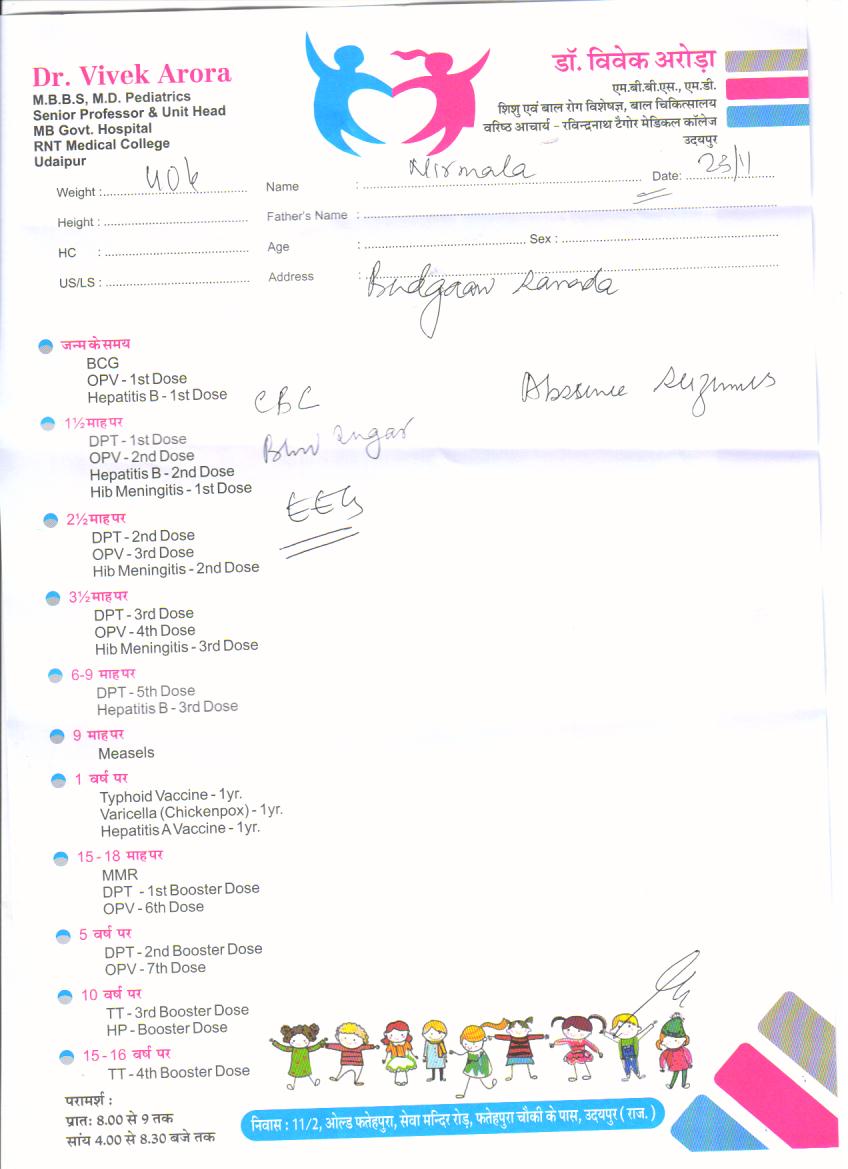 Dr. Vivek Arora
M.B.B.S, M.D. Pediatrics
Senior Professor & Unit Head
MB Govt. Hospital
RNT Medical College
Udaipur
डॉ. विवेक अरोड़ा
एम.बी.बी.एस., एम.डी.
शिशु एवं बाल रोग विशेषज्ञ, बाल चिकित्सालय
वरिष्ठ आचार्य – रविन्द्रनाथ टैगोर मेडिकल कॉलेज
उदयपुर
Weight : 40k Name : Nirmala Date: 23/11
Height : Father's Name :
HC : Age : Sex :
US/LS : Address :
जन्म के समय
BCG
OPV - 1st Dose
Hepatitis B - 1st Dose
CBC
1½ माह पर
DPT - 1st Dose
OPV - 2nd Dose
Hepatitis B - 2nd Dose
Hib Meningitis - 1st Dose
sugar
EEG
2½ माह पर
DPT - 2nd Dose
OPV - 3rd Dose
Hib Meningitis - 2nd Dose
3½ माह पर
DPT - 3rd Dose
OPV - 4th Dose
Hib Meningitis - 3rd Dose
6-9 माह पर
DPT - 5th Dose
Hepatitis B - 3rd Dose
9 माह पर
Measels
1 वर्ष पर
Typhoid Vaccine - 1yr.
Varicella (Chickenpox) - 1yr.
Hepatitis A Vaccine - 1yr.
15-18 माह पर
MMR
DPT - 1st Booster Dose
OPV - 6th Dose
5 वर्ष पर
DPT - 2nd Booster Dose
OPV - 7th Dose
10 वर्ष पर
TT - 3rd Booster Dose
HP - Booster Dose
15-16 वर्ष पर
TT - 4th Booster Dose
परामर्श :
प्रातः 8.00 से 9 तक
सांय 4.00 से 8.30 बजे तक
निवास : 11/2, ओल्ड फतेहपुरा, सेवा मन्दिर रोड़, फतेहपुरा चौकी के पास, उदयपुर ( राज. )